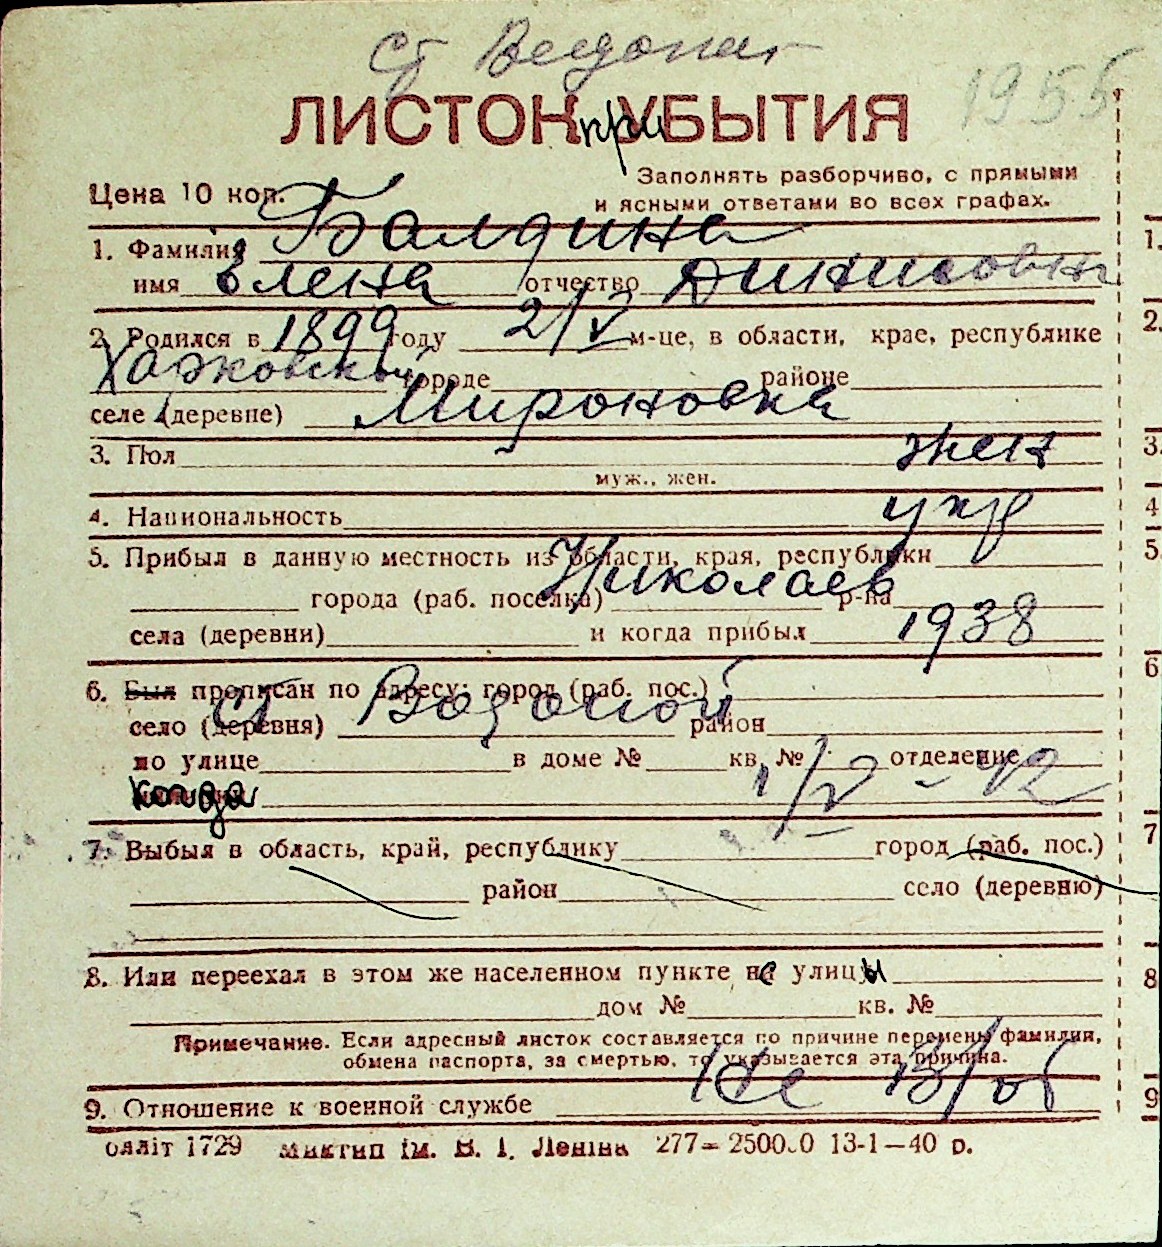 Ст Водопой
1955
ЛИСТОК при УБЫТИЯ
Цена 10 коп.
Заполнять разборчиво, с прямыми
и ясными ответами во всех графах.
1. Фамилия Балдина
имя Елена отчество Динисовна
2. Родился в 1899 году 2/V м-це, в области, крае, республике
Харковской городе районе
селе (деревне) Мироновка
3. Пол жен
муж., жен.
4. Национальность укр
5. Прибыл в данную местность из области, края, республики
Николаев
города (раб. поселка) р-на
села (деревни) и когда прибыл 1938
6. Был прописан по адресу: город (раб. пос.)
село (деревня) ст Водопой район
по улице в доме № кв. № отделение
когда 1/IV - 42
7. Выбыл в область, край, республику город (раб. пос.)
район село (деревню)
8. Или переехал в этом же населенном пункте не улицы
дом № кв. №
Примечание. Если адресный листок составляется по причине перемены фамилии,
обмена паспорта, за смертью, то указывается эта причина.
9. Отношение к военной службе не в/об
обліт 1729 ім. В. І. Леніна 277—2500.0 13-1—40 р.
1.
2.
3.
4
5.
6
7
8
9